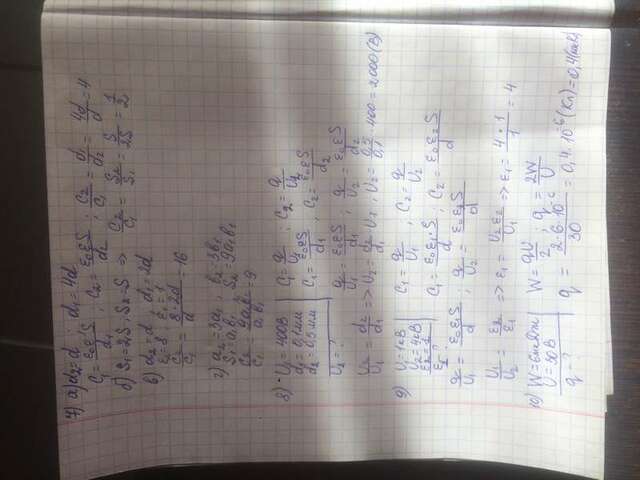 7) а) d2=d, d1=4d
C1=ε0εS/d1; C2=ε0εS/d2; C2/C1=d1/d2=4d/d=4
б) S1=2S, S2=S => C2/C1=S2/S1=S/2S=1/2
в) d2=d, d1=2d
C2/C1=8·2d/d=16
г) a2=3a1, b2=3b1
S1=a1b1, S2=9a1b1
8) U1=400В
d1=0,1мм
d2=0,5мм
U2=?
C1=q/U1, C2=q/U2
C1=ε0εS/d1, C2=ε0εS/d2
q/U1=ε0εS/d1; q/U2=ε0εS/d2
U2/U1=d2/d1 => U2=d2/d1·U1; U2=0,5/0,1·400=2000(В)
9) U1=1кВ
U2=4кВ
ε2=1
ε1-?
C1=q/U1, C2=q/U2
C1=ε0ε1S/d, C2=ε0ε2S/d
q/U1=ε0ε1S/d; q/U2=ε0ε2S/d
U1/U2=ε2/ε1 => ε1=U2ε2/U1 => ε1=4·1/1=4
10) W=6мкДж
q-?
W=qU/2; q=2W/U
q=2·6·10⁻⁶/30=0,4·10⁻⁶(Кл)=0,4(мкКл)